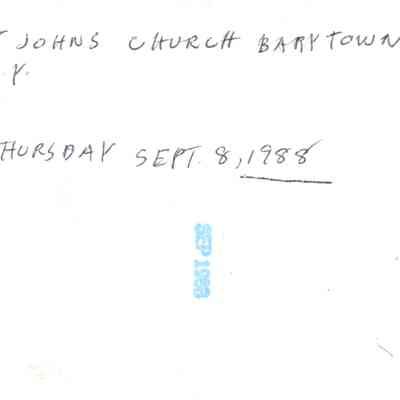 T JOHNS CHURCH BARYTOWN
.Y.
HURSDAY SEPT. 8, 1988
SEP 1988